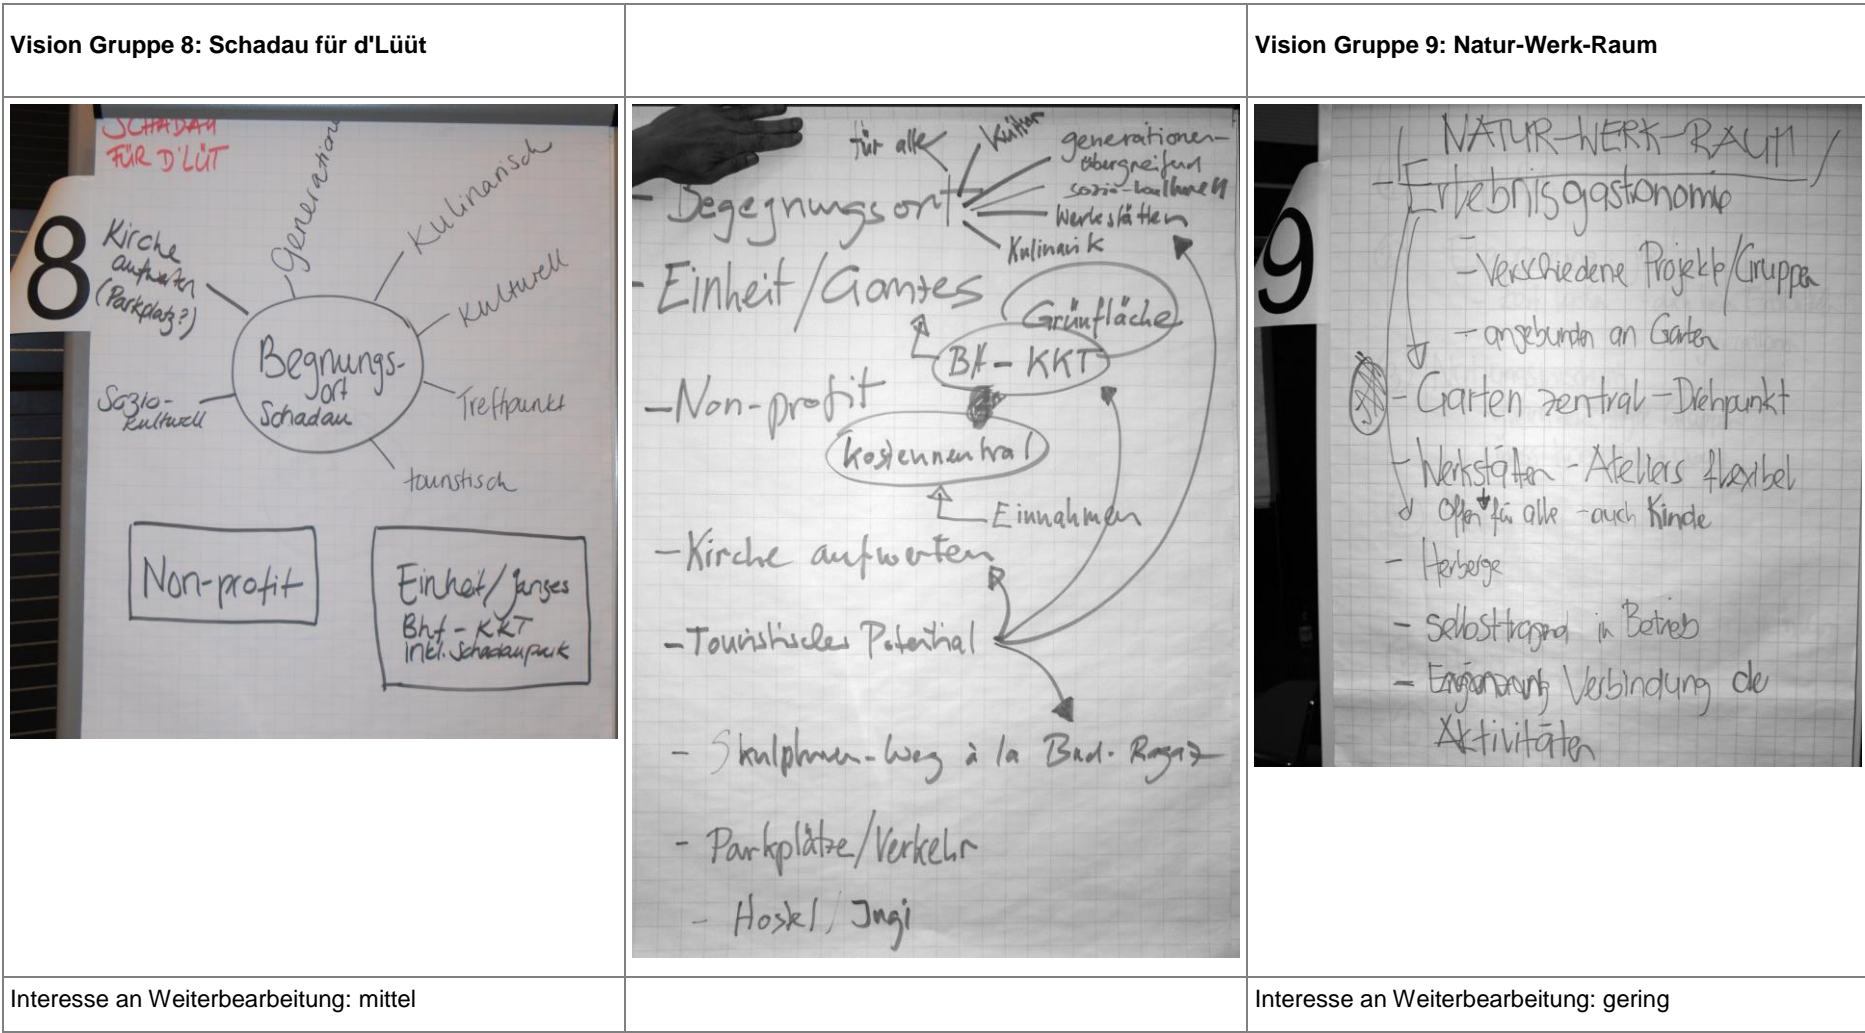 Vision Gruppe 8: Schadau für d'Lüüt
Vision Gruppe 9: Natur-Werk-Raum
SCHADAU
FÜR D'LÜT
8
Kirche
aufwerten
(Parkplatz?)
Generationen
Kulinarisch
Kulturell
Begnungs-
ort
Schadau
Sozio-
kulturell
Treffpunkt
touristisch
Non-profit
Einheit/ganzes
Bhf - KKT
inkl. Schadaupark
für alle
Kultur
generationen-
übergreifend
sozio-kulturell
- Begegnungsort
Werkstätten
Kulinarik
- Einheit/Ganzes
Grünfläche
BH - KKT
- Non-profit
kostenneutral
Einnahmen
- Kirche aufwerten
- Touristisches Potential
- Skulpturen-Weg à la Bad-Ragaz
- Parkplätze/Verkehr
- Hostel/Jugi
NATUR-WERK-RAUM
9
- Erlebnisgastronomie
- Verschiedene Projekte/Gruppen
- angebunden an Garten
- Garten zentral - Drehpunkt
- Werkstätten - Ateliers flexibel
Offen für alle - auch Kinde
- Herberge
- selbsttragend in Betrieb
- Ergänzung Verbindung de
Aktivitäten
Interesse an Weiterbearbeitung: mittel
Interesse an Weiterbearbeitung: gering